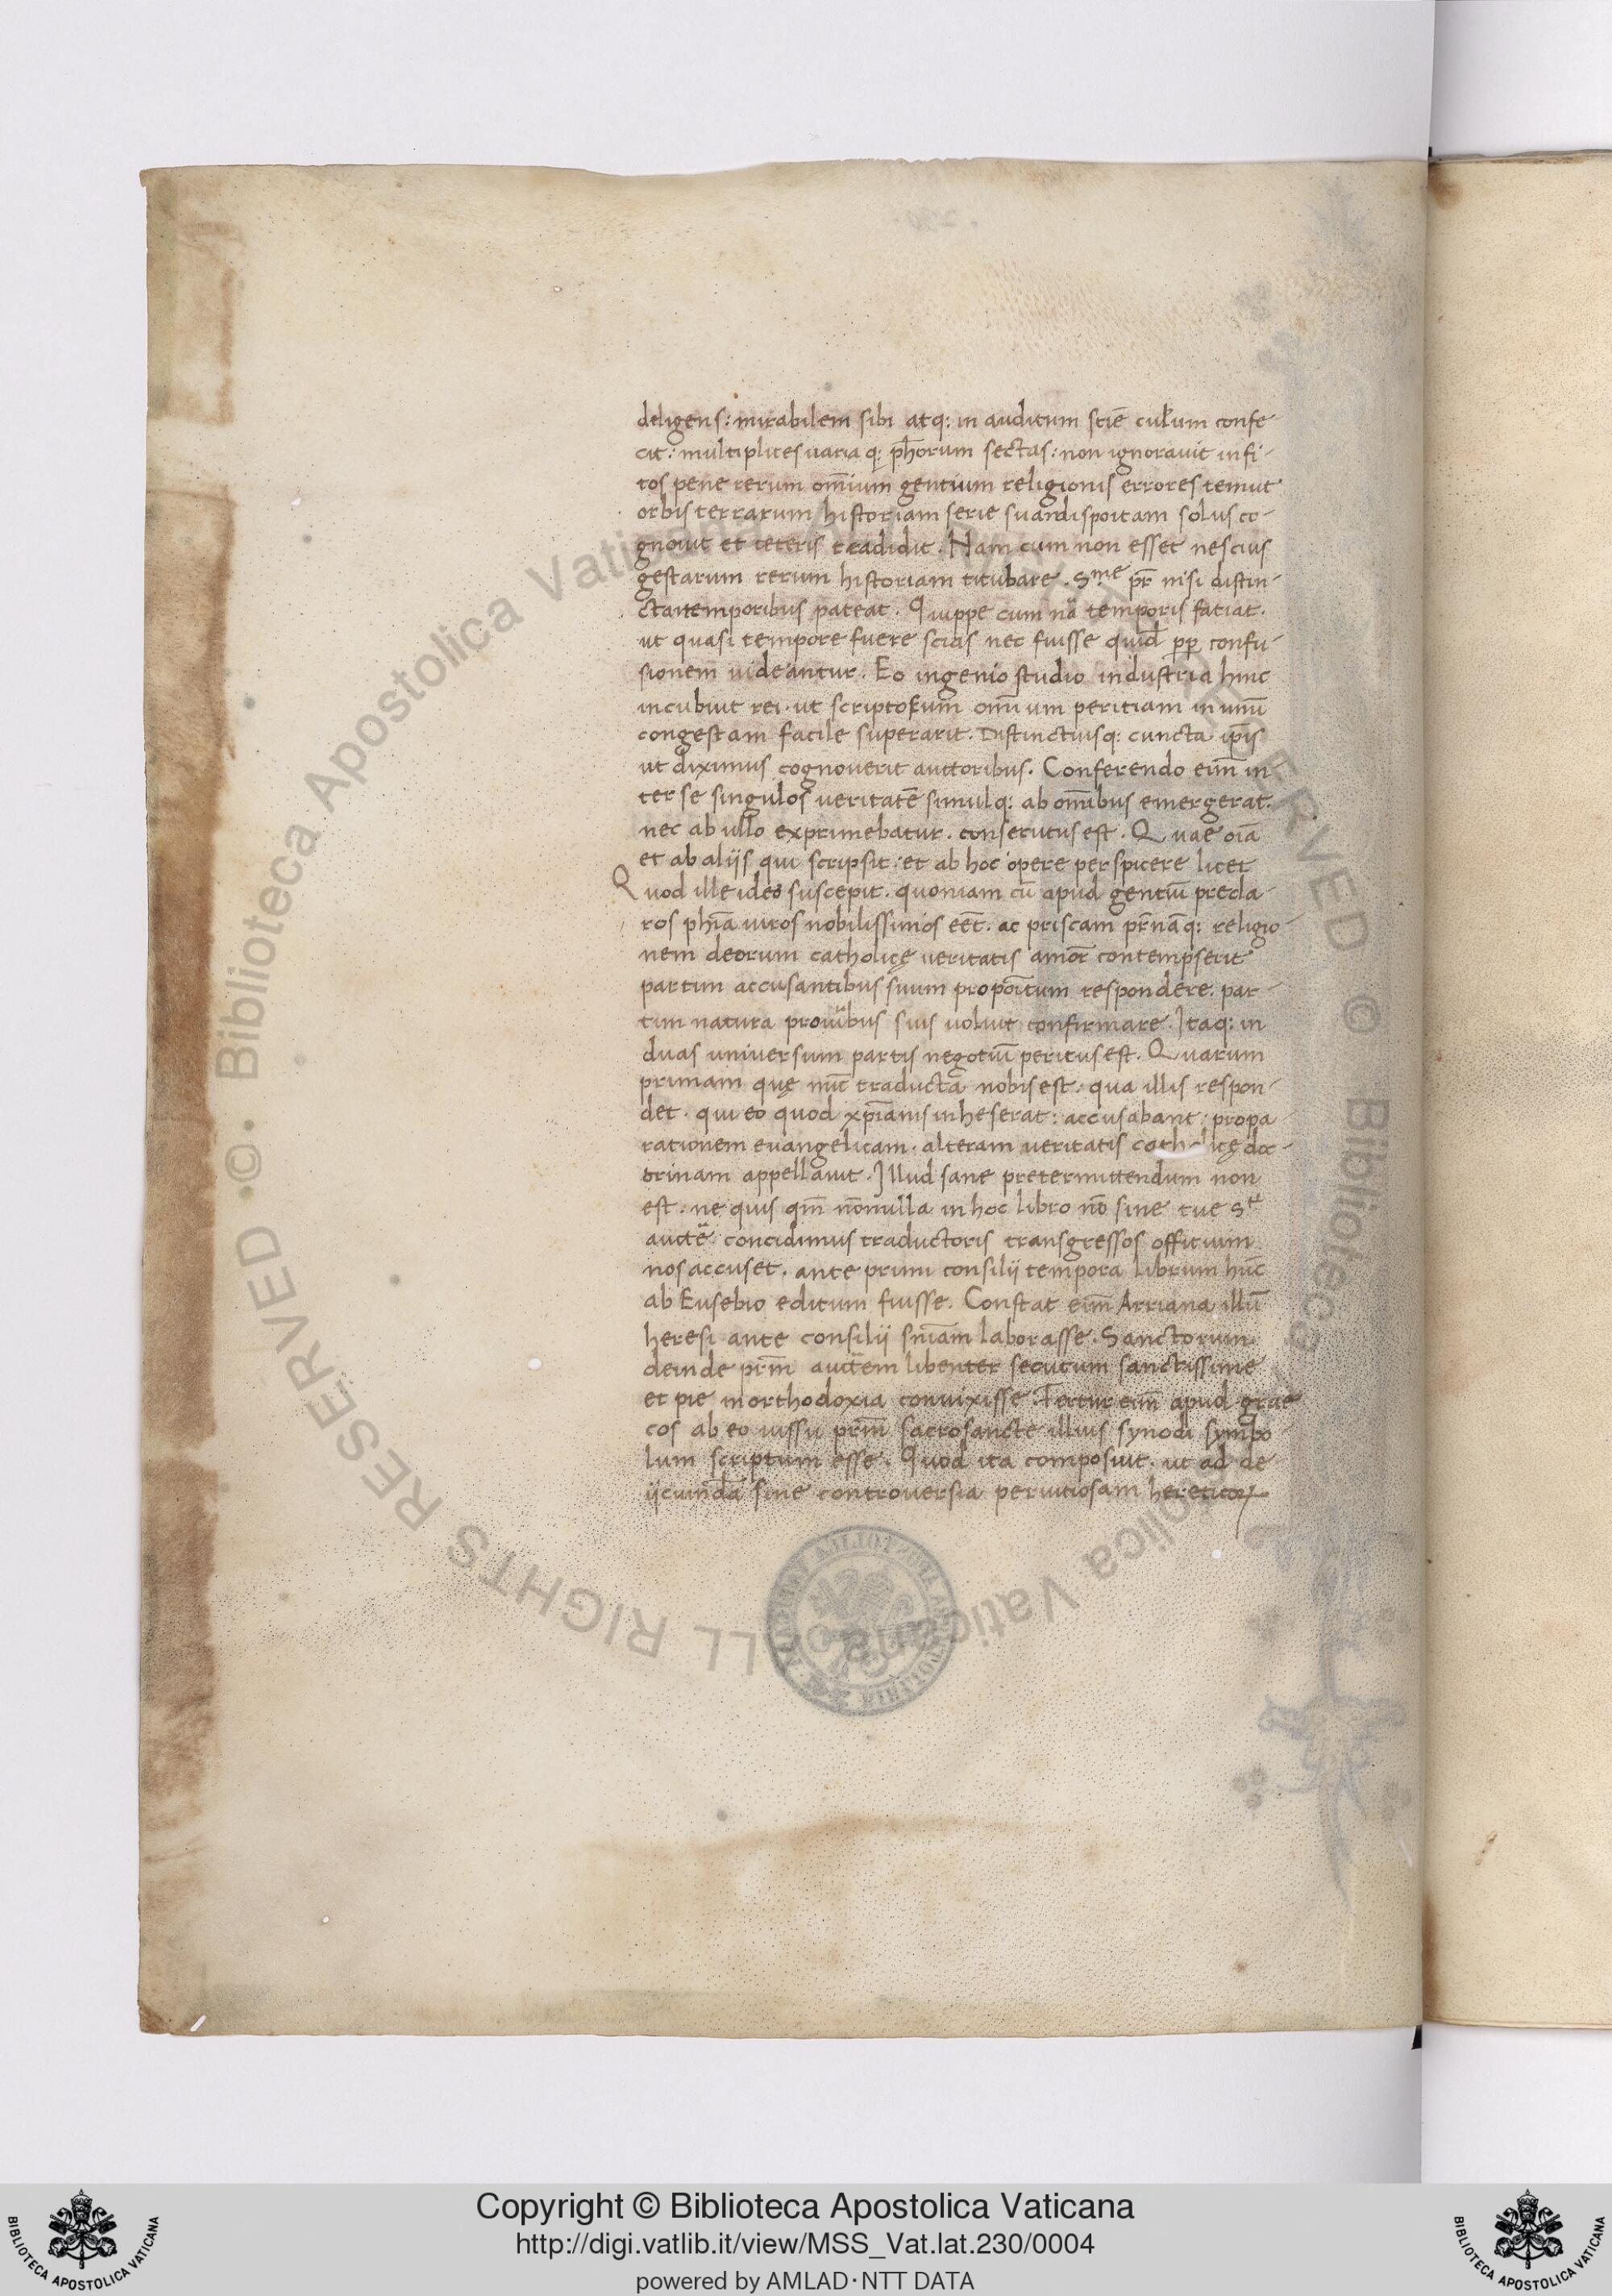 deligens: mirabilem sibi atq: in auditum sciē cultum confe-
cit: multiplices uaria q: ph̄orum sectas: non ignorauit infi-
tos pene rerum om̄ium gentium religionis errores tenuit
orbis terrarum historiam serie sua dispoitam solus co-
gnouit et ceteris tradidit. Nam cum non esset nescius
gestarum rerum historiam titubare. Sme pr̄ nisi distin-
cta temporibus pateat. Quippe cum nā temporis fatiat.
ut quasi tempore fuere scias nec fuisse quid pp̄ confu-
sionem uideantur. Eo ingenio studio industria huic
incubuit rei. ut scriptorum omnium peritiam in unū
congestam facile superarit. Distinctiusq: cuncta ip̄is
ut diximus cognouerit auctoribus. Conferendo eim̄ in-
ter se singulos ueritatē simulq: ab om̄ibus emergerat.
nec ab ullo exprimebatur. consecutus est. Quae oīa
et ab alijs qui scripsit: et ab hoc opere perspicere licet
Quod ille ideo suscepit. quoniam cū apud gentiū precla-
ros phīa uiros nobilissimos eēt. ac priscam pr̄nāq: religio-
nem deorum catholicę ueritatis amor̄ contempserit
partim accusantibus suum propoītum respondere. par-
tim natura prouibus suis uoluit confirmare. Itaq: in
duas uniuersum partis negotiū peritus est. Quarum
primam quę nūc traducta nobis est. qua illis respon-
det. qui eo quod xp̄ianis inheserat: accusabant: propa
rationem euangelicam. alteram ueritatis catholicę doc-
trinam appellauit. Illud sane pretermittendum non
est. ne quis qm̄ nōnulla in hoc libro nō sine tue Sti
aucte concidimus traductoris transgressos offitium
nos accuset. ante primi consilij tempora librum hūc
ab Eusebio editum fuisse. Constat eim̄ Arriana illū
heresi ante consilij sn̄iam laborasse. Sanctorum
deinde prm̄ auctem libenter secutum sanctissime
et pie in orthodoxia conuixisse. Fertur eim̄ apud grae
cos ab eo iussu prm̄ sacrosancte illius synodi symbo
lum scriptum esse. Quod ita composuit. ut ad de
ijcienda sine controuersia pernitiosam hereticoꝝ
© Biblioteca Apostolica Vaticana
ALL RIGHTS RESERVED
Copyright © Biblioteca Apostolica Vaticana
http://digi.vatlib.it/view/MSS_Vat.lat.230/0004
powered by AMLAD·NTT DATA
BIBLIOTECA APOSTOLICA VATICANA
BIBLIOTECA APOSTOLICA VATICANA